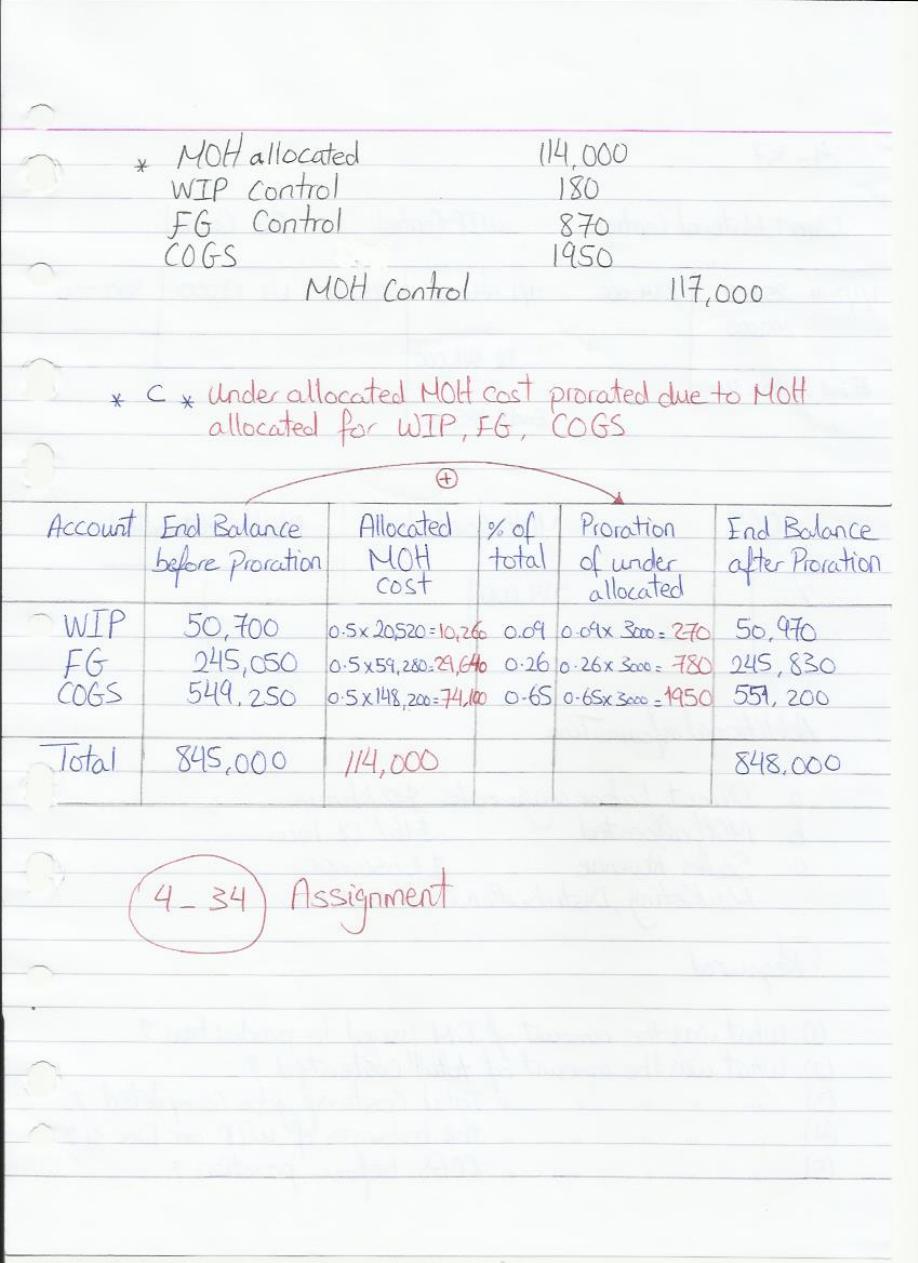 * MOH allocated 114,000
WIP Control 180
FG Control 870
COGS 1950
MOH Control 117,000
* C * Under allocated MOH cost prorated due to MOH
allocated for WIP, FG, COGS
+
Account | End Balance before Proration | Allocated MOH cost | % of total | Proration of under allocated | End Balance after Proration
WIP | 50,700 | 0.5 x 20,520 = 10,260 | 0.09 | 0.09 x 3000 = 270 | 50,970
FG | 245,050 | 0.5 x 59,280 = 29,640 | 0.26 | 0.26 x 3000 = 780 | 245,830
COGS | 549,250 | 0.5 x 148,200 = 74,100 | 0.65 | 0.65 x 3000 = 1950 | 551,200
Total | 845,000 | 114,000 | 848,000
4-34 Assignment